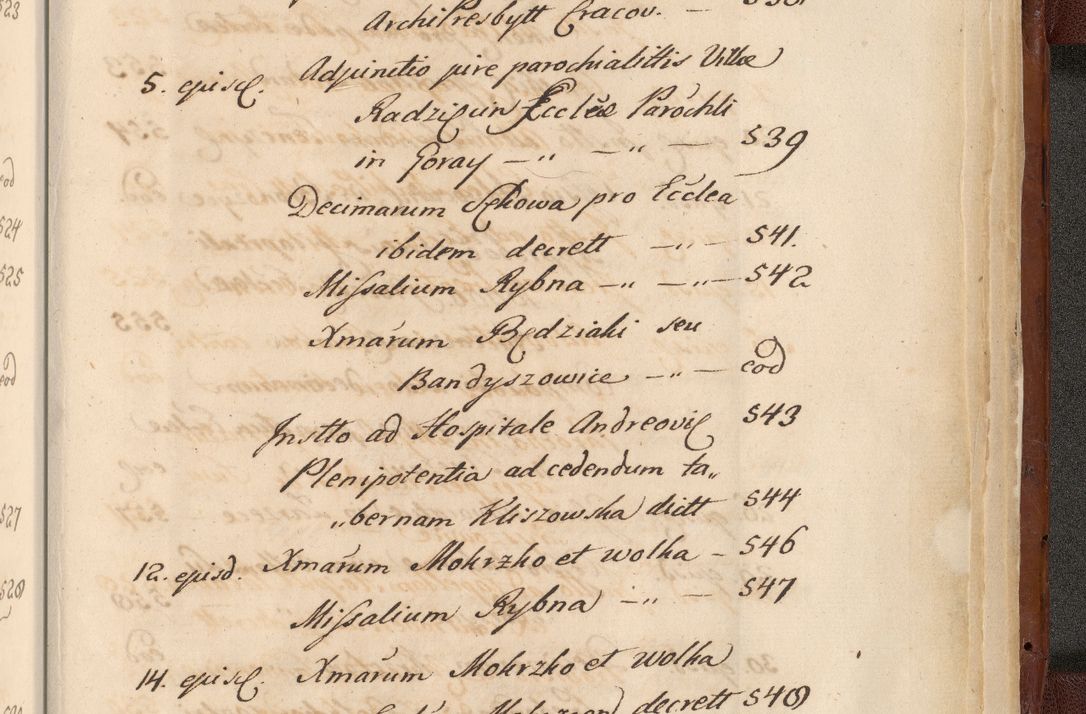 ArchiPresbytt Cracov. — 538
5. episc. Adjunctio jure parochialitis Villæ
Radzięcin Eccleæ Parochli
in Goray — „ — „ — 539
Decimarum Sękowa pro Ecclea
ibidem decrett — „ — 541.
Missalium Rybna — „ — „ — 542
Xmarum Będziaki seu
Bandyszowice — „ — eod
Instto ad Hospitale Andreovie 543
Plenipotentia ad cedendum ta„
„bernam Kliszowska dictt 544
12. episd. Xmarum Mokrzko et wolka — 546
Missalium Rybna — „ — 547
14. episc. Xmarum Mokrzko et wolka
decrett 548
523
eod
524
525
eod
527
528